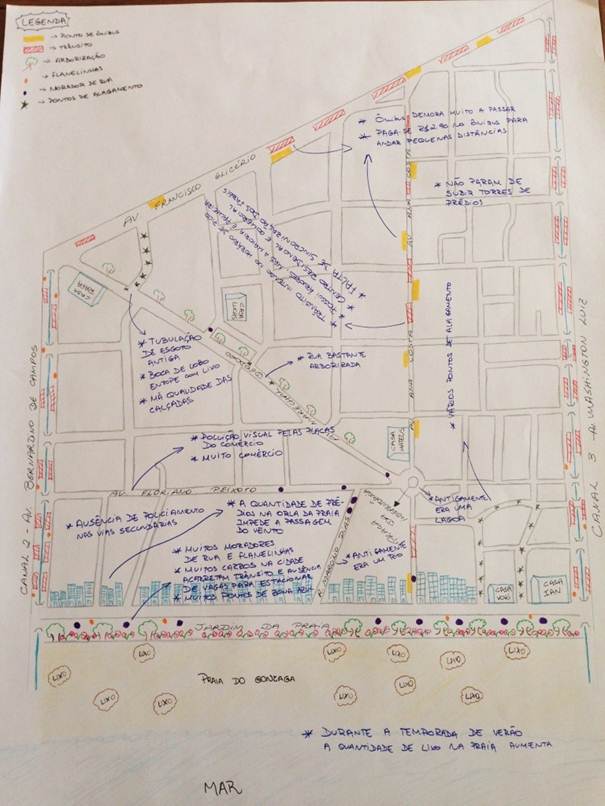 LEGENDA
→ PONTO DE ÔNIBUS
→ TRÂNSITO
→ ARBORIZAÇÃO
→ FLANELINHAS
→ MORADOR DE RUA
→ PONTOS DE ALAGAMENTO
* ÔNIBUS DEMORA MUITO A PASSAR
* PAGA-SE R$2,90 NO ÔNIBUS PARA
ANDAR PEQUENAS DISTÂNCIAS
AV FRANCISCO GLICÉRIO
AV ANA COSTA
* NÃO PARAM DE
SUBIR TORRES DE
PRÉDIOS
* FALTA DE SINCRONIZAÇÃO DOS FARÓIS
* TRÂNSITO INTENSO NO HORÁRIO DE PICO
CASA
* TUBULAÇÃO
DE ESGOTO
ANTIGA
* BOCA DE LOBO
ENTOPE COM LIXO
* MÁ QUALIDADE DAS
CALÇADAS
* RUA BASTANTE
ARBORIZADA
* VÁRIOS PONTOS DE ALAGAMENTO
AV ANA COSTA
CANAL 2 - AV BERNARDINO DE CAMPOS
CANAL 3 - AV WASHINGTON LUIZ
* POLUIÇÃO VISUAL PELAS PLACAS
DO COMÉRCIO
* MUITO COMÉRCIO
CASA
AV FLORIANO PEIXOTO
* AUSÊNCIA DE POLICIAMENTO
NAS VIAS SECUNDÁRIAS
* A QUANTIDADE DE PRÉ-
DIOS NA ORLA DA PRAIA
IMPEDE A PASSAGEM
DO VENTO
* ANTIGAMENTE
ERA UMA
LAGOA
* MUITOS MORADORES
DE RUA E FLANELINHAS
* MUITOS CARROS NA CIDADE
ACARRETAM TRÂNSITO E AUSÊNCIA
DE VAGAS PARA ESTACIONAR
* ANTIGAMENTE
ERA UM RIO
CASA
CASA
IAN
JARDIM DA PRAIA
LIXO
LIXO
LIXO
LIXO
LIXO
LIXO
PRAIA DO GONZAGA
LIXO
LIXO
LIXO
LIXO
LIXO
* DURANTE A TEMPORADA DE VERÃO
A QUANTIDADE DE LIXO NA PRAIA AUMENTA
MAR